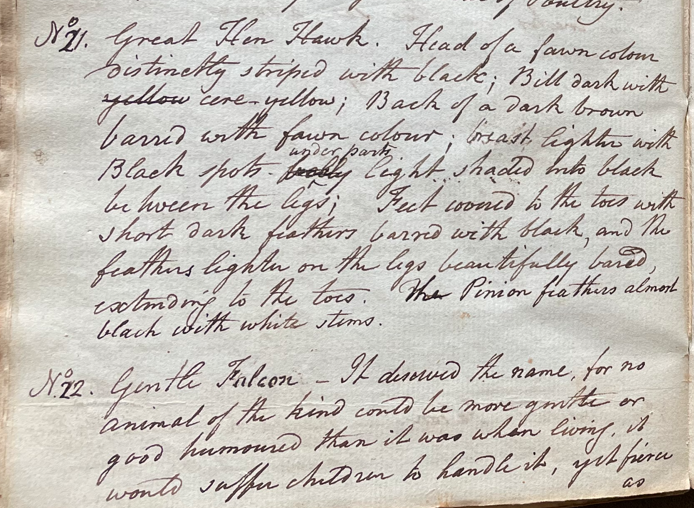 of Poultry.
No 21. Great Hen Hawk. Head of a fawn colour
distinctly striped with black; Bill dark with
yellow cere-yellow; Back of a dark brown
barred with fawn colour; breast lighter with
under parts
Black spots - body light shaded into black
between the legs; Feet covered to the toes with
short dark feathers barred with black, and the
feathers lighter on the legs beautifully bared,
extending to the toes. The Pinion feathers almost
black with white stems.
No 22. Gentle Falcon - It deserved the name, for no
animal of the kind could be more gentle or
good humoured than it was when living. it
would suffer children to handle it, yet fierce
as